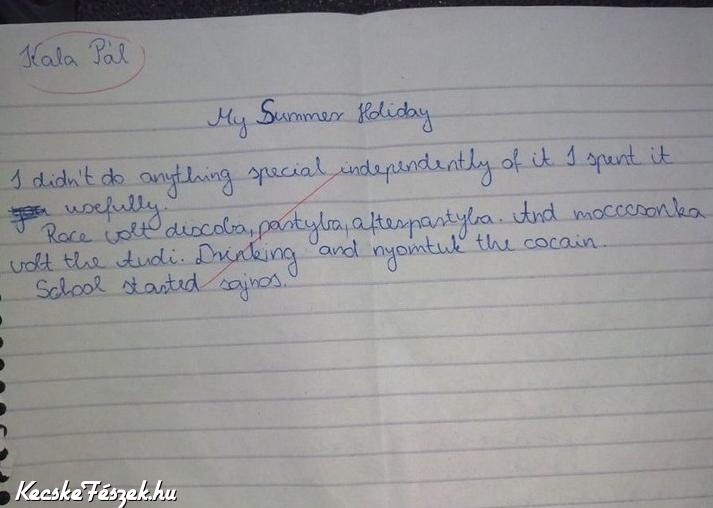 Kala Pál
My Summer Holiday
I didn't do anything special independently of it I spent it
usefully.
Race volt discoba, partyba, afterpartyba. And mocccsonka
volt the Audi. Drinking and nyomtuk the cocain.
School started sajnos.
KecskeFészek.hu